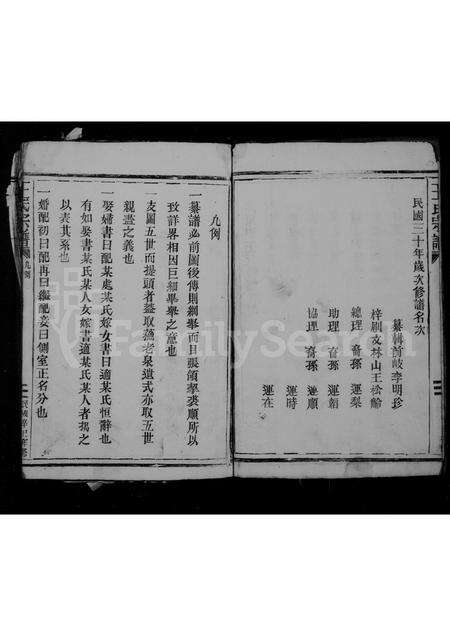 王氏宗譜
民國三十年歲次修譜名次
纂輯首岐李明珍
梓刷文林山王松齡
總理 裔孫 運梨
助理 裔孫 運朝
協理 裔孫 運順
運時
運在
凡例
一纂譜必前圖後傳則綱舉而目張領挈裘順所以
致詳畧相因巨細畢舉之意也
一支圖五世而提頭者葢取蘇老泉遺式亦取五世
親盡之義也
一娶婦書曰配某處某氏嫁女書曰適某氏恒辭也
有如娶書某氏某人女嫁書適某氏某人者揭之
以表其系也
一婚配初曰配再曰繼配妾曰側室正名分也
王氏宗譜
凡例
FamilySearch